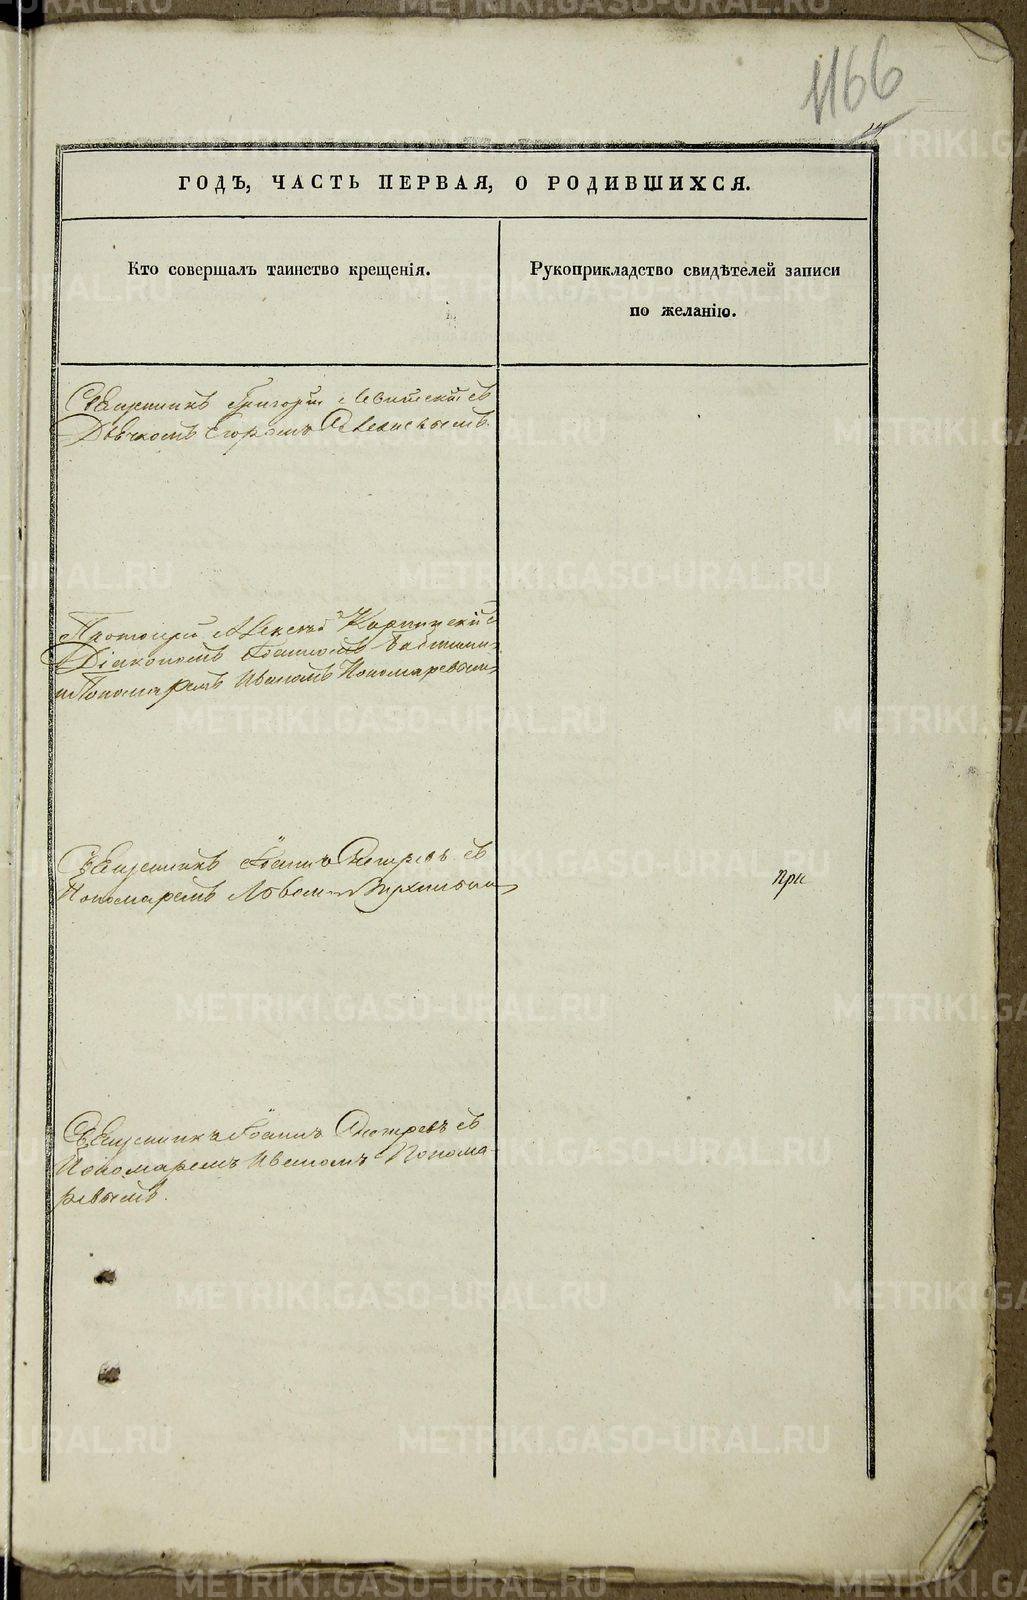 1166
ГОДЪ, ЧАСТЬ ПЕРВАЯ, О РОДИВШИХСЯ.
Кто совершалъ таинство крещенія.
Рукоприкладство свидѣтелей записи
по желанію.
Священникъ Григорій Левитскій съ
Дьячкомъ Егоромъ
Протоіерей Алексѣй Карпинскій с
Діакономъ Іоанномъ
и Пономаремъ Иваномъ Пономаревым
Священникъ Іоаннъ съ
Пономаремъ Львом
при
Священникъ Іоаннъ съ
Пономаремъ Иваномъ Понома-
ревымъ.
METRIKI.GASO-URAL.RU